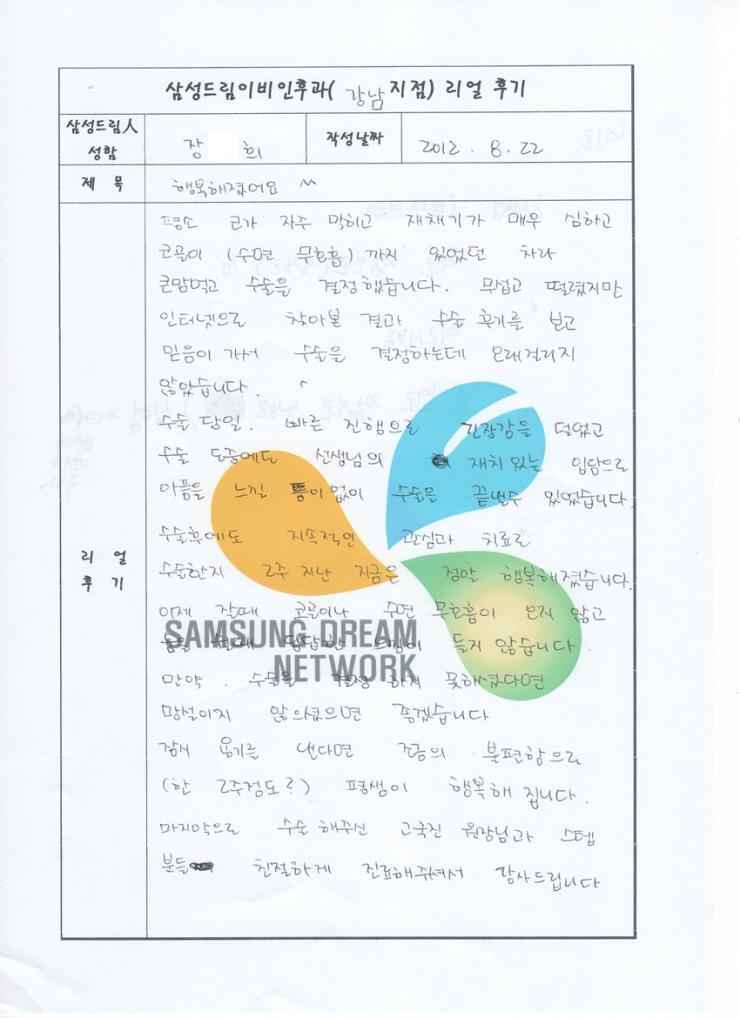 삼성드림이비인후과( 강남 지점) 리얼 후기
삼성드림人 성함
장 희
작성날짜
2012 . 8 . 22
제 목
행복해졌어요 ^^
리 얼 후 기
평소 코가 자주 막히고 재채기가 매우 심하고
코골이 (수면 무호흡) 까지 있었던 차라
큰맘먹고 수술을 결정했습니다. 무섭고 떨렸지만
인터넷으로 찾아본 결과 수술 후기를 보고
믿음이 가서 수술을 결정하는데 오래걸리지
않았습니다.
수술 당일. 빠른 진행으로 긴장감을 덜었고
수술 도중에도 선생님의 재치있는 입담으로
아픔을 느낄 틈이 없이 수술을 끝낼수 있었습니다.
수술후에도 지속적인 관심과 치료로
수술한지 2주 지난 지금은 정말 행복해졌습니다.
이제 잘때 코골이나 수면 무호흡이 오지 않고
답답한 느낌이 들지 않습니다.
SAMSUNG DREAM
NETWORK
만약. 수술을 결정 하지 못하셨다면
망설이지 않으셨으면 좋겠습니다
잠시 용기를 낸다면 조금의 불편함으로
(한 2주정도?) 평생이 행복해 집니다.
마지막으로 수술 해주신 고국진 원장님과 스텝
분들 친절하게 진료해주셔서 감사드립니다